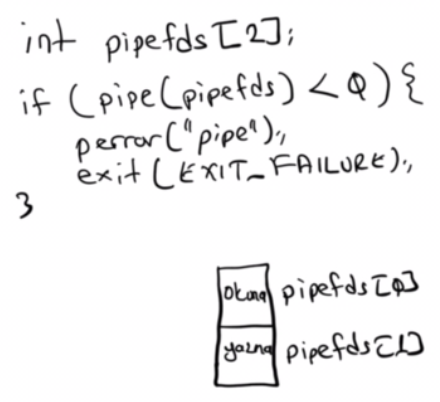 int pipefds [2];
if (pipe(pipefds) < 0) {
perror("pipe");
exit (EXIT_FAILURE);
}
okuma pipefds[0]
yazma pipefds[1]